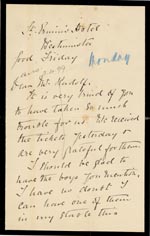 St. Ermin's Hotel
Westminster
Good Friday
Monday
Dear Mr. Rudolf.
It is very kind of you
to have taken so much
trouble for us. We received
the tickets yesterday &
are very grateful for them.
I should be glad to
have the boys you mention,
I have no doubt I
can have one of them
in my stable this